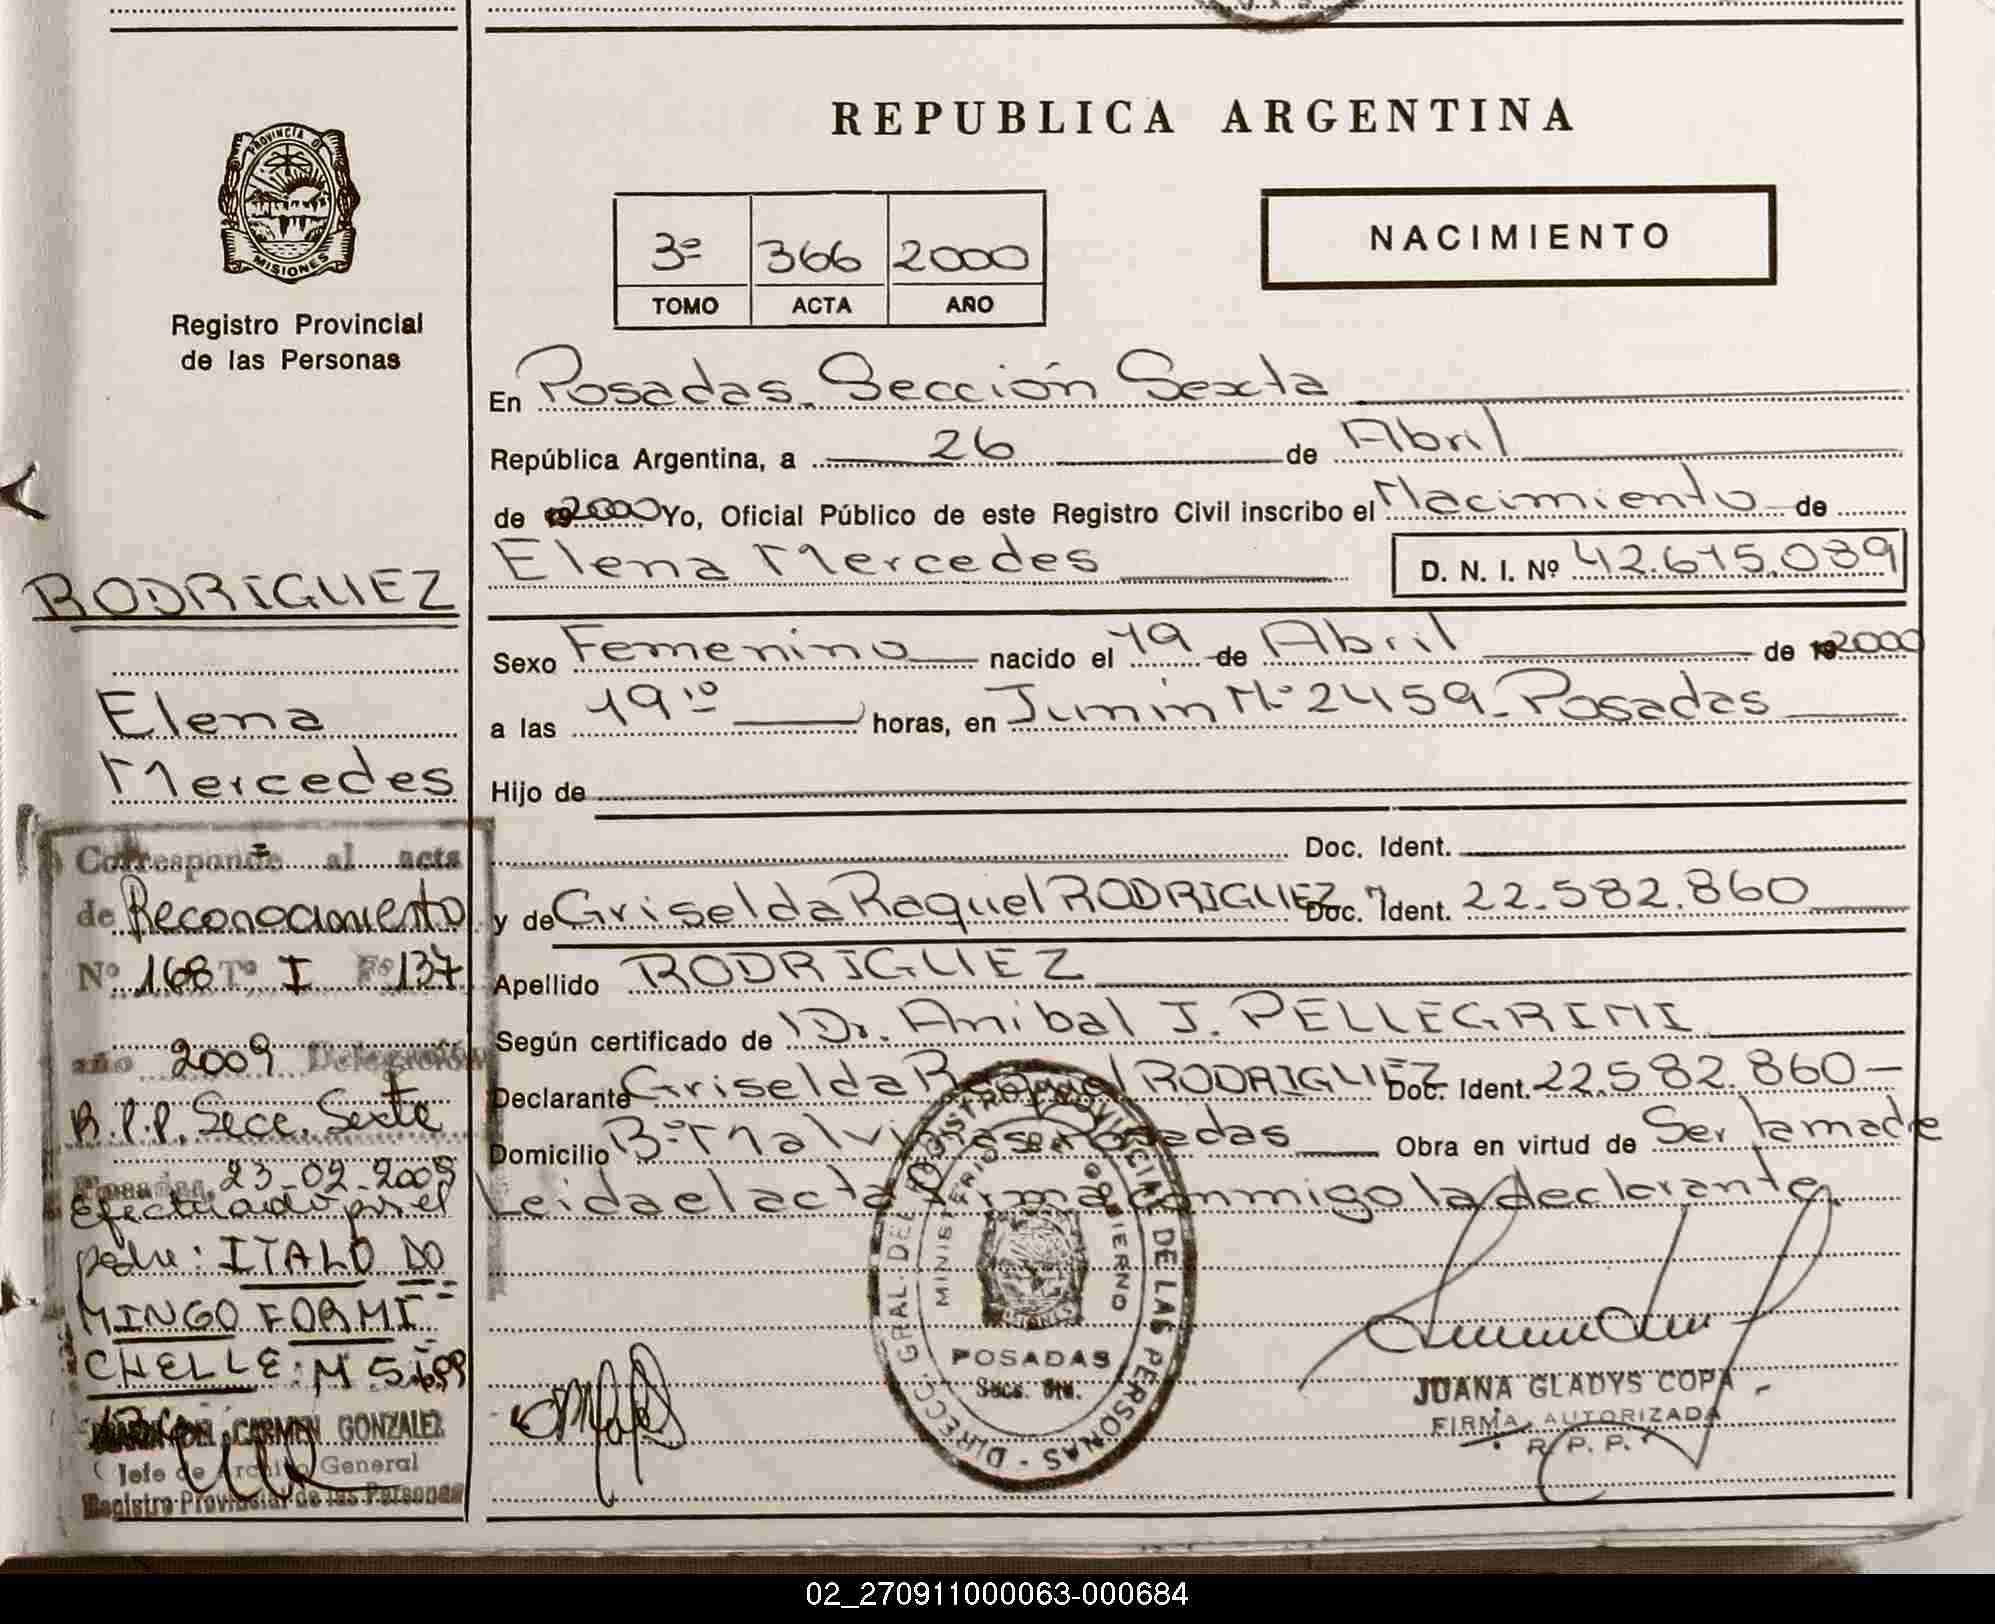 REPUBLICA ARGENTINA
PROVINCIA DE
MISIONES
Registro Provincial
de las Personas
3º 366 2000
TOMO ACTA AÑO
NACIMIENTO
En Posadas. Sección Sexta
República Argentina, a 26 de Abril
de 2000 Yo, Oficial Público de este Registro Civil inscribo el Nacimiento de
Elena Mercedes D. N. I. Nº 42.615.039
Sexo Femenino nacido el 19 de Abril de 2000
a las 19 10 horas, en Junín Nº 2459 - Posadas
Hijo de
Doc. Ident.
y de Griselda Raquel RODRIGUEZ Doc. Ident. 22.582.860
Apellido RODRIGUEZ
Según certificado de Dr. Anibal J. PELLEGRINI
Declarante Griselda Raquel RODRIGUEZ Doc. Ident. 22.582.860-
Domicilio Bº Malvinas Posadas Obra en virtud de Ser la madre
Leida el acta firma conmigo la declarante
RODRIGUEZ
Elena
Mercedes
Corresponde al acta
de Reconocimiento
Nº 168 Tº I Fº 137
año 2009 Delegación
R.P.P. Secc. Sexta
Posadas, 23-02-2009
Efectuado por el
padre: ITALO DO
MINGO FORMI
CHELLE: M
DEL CARMEN GONZALEZ
Jefe de Archivo General
Registro Provincial de las Personas
DIRECC. GRAL. DEL REGISTRO PROVINCIAL DE LAS PERSONAS
MINISTERIO DE GOBIERNO
POSADAS
Secc. 6ta.
JUANA GLADYS COPA
FIRMA AUTORIZADA
R. P. P.
02_270911000063-000684